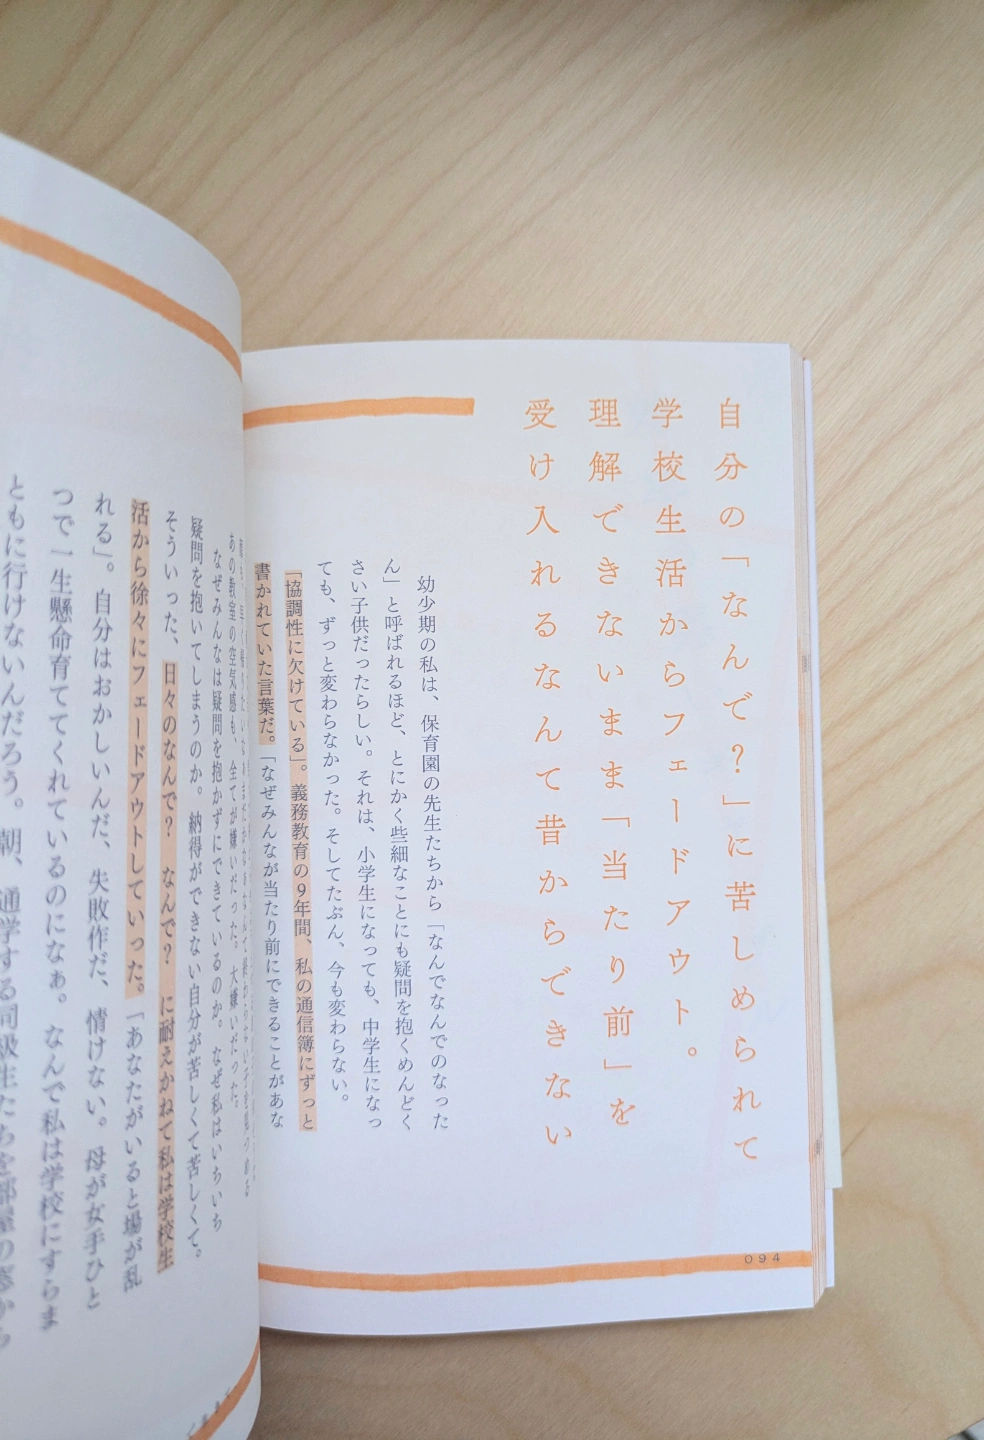 自分の「なんで？」に苦しめられて
学校生活からフェードアウト。
理解できないまま「当たり前」を
受け入れるなんて昔からできない
幼少期の私は、保育園の先生たちから「なんでなんでのなった
ん」と呼ばれるほど、とにかく些細なことにも疑問を抱くめんどく
さい子供だったらしい。それは、小学生になっても、中学生になっ
ても、ずっと変わらなかった。そしてたぶん、今も変わらない。
「協調性に欠けている」。義務教育の9年間、私の通信簿にずっと
書かれていた言葉だ。「なぜみんなが当たり前にできることがあな
094
あの教室の空気感も、全てが嫌いだった。大嫌いだった。
なぜみんなは疑問を抱かずにできているのか。なぜ私はいちいち
疑問を抱いてしまうのか。納得ができない自分が苦しくて苦しくて。
そういった、日々のなんで？　なんで？　に耐えかねて私は学校生
活から徐々にフェードアウトしていった。「あなたがいると場が乱
れる」。自分はおかしいんだ、失敗作だ、情けない。母が女手ひと
つで一生懸命育ててくれているのになぁ。なんで私は学校にすらま
ともに行けないんだろう。朝、通学する同級生たちを部屋の窓から